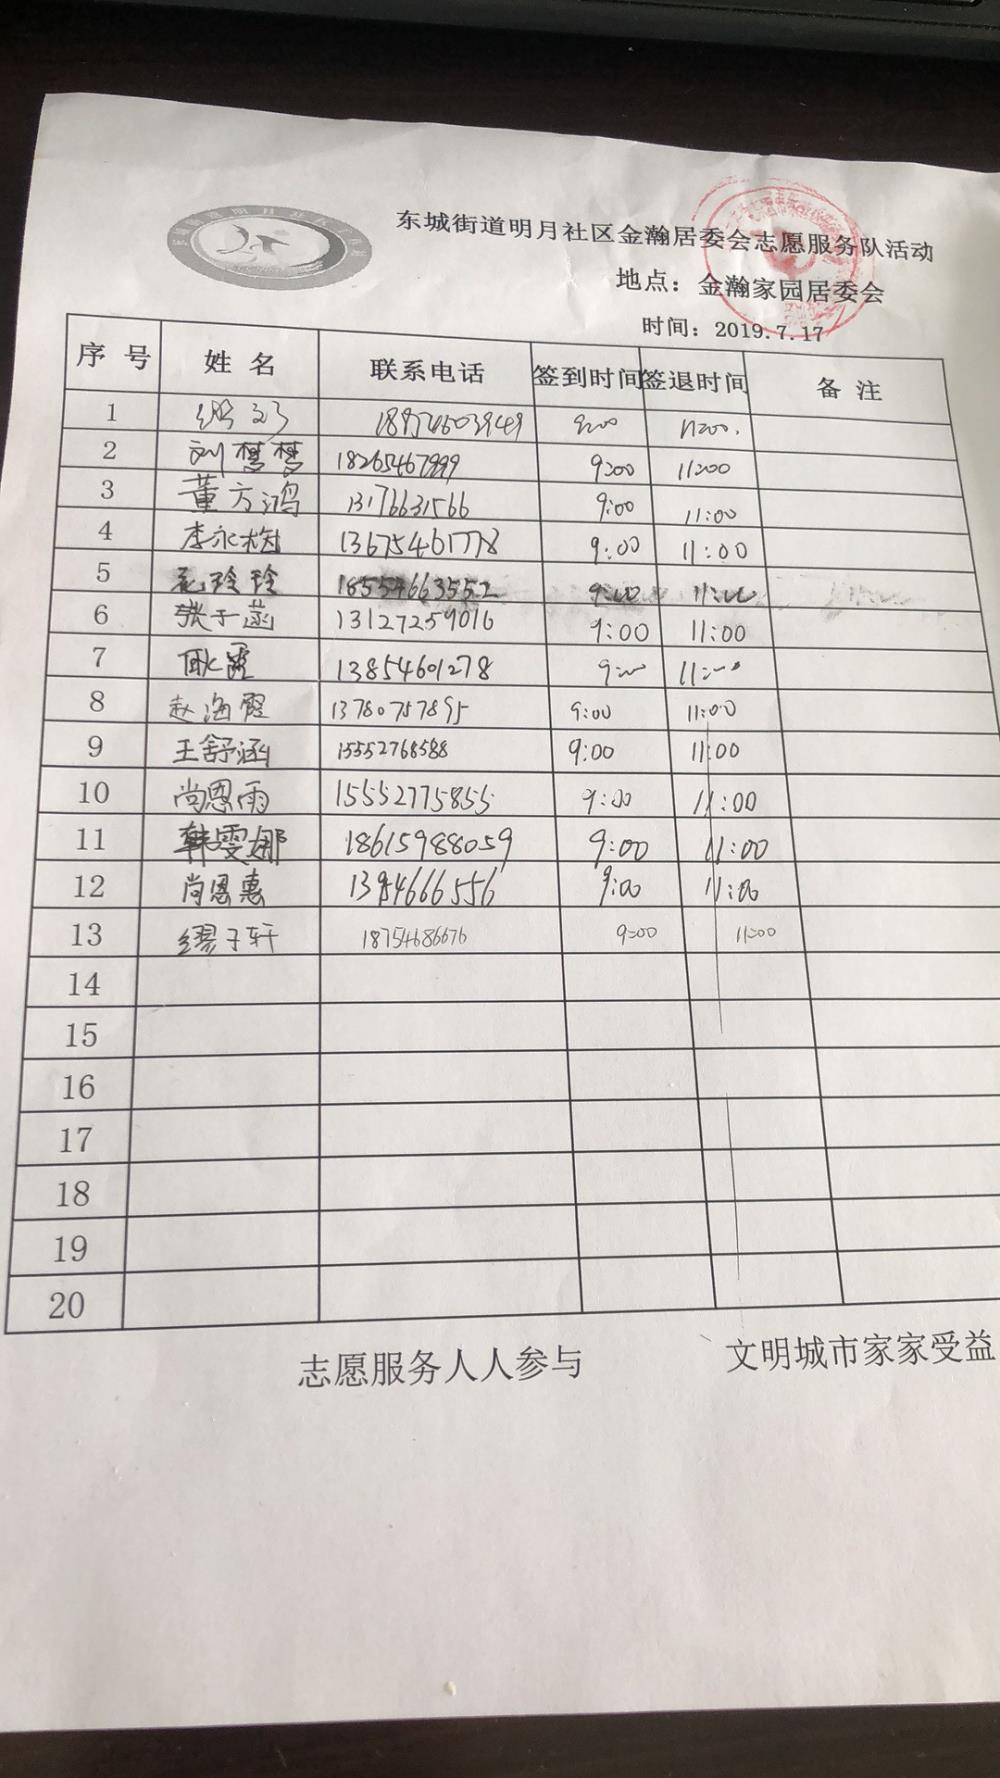 东城街道明月社区金瀚居委会志愿服务队活动
地点：金瀚家园居委会
时间：2019.7.17
序号 姓名 联系电话 签到时间 签退时间 备注
1 9:00 11:00.
2 刘梦梦 18265467999 9:00 11:00
3 董方鸿 13176631566 9:00 11:00
4 李永梅 13675461778 9:00 11:00
5 玲玲 18554663552 9:00 11:00
6 张于菡 13127259016 9:00 11:00
7 耿露 13854601278 9:00 11:00
8 赵海霞 13780757895 9:00 11:00
9 王舒涵 15552768588 9:00 11:00
10 尚恩雨 15552775855 9:00 11:00
11 韩雯娜 18615988059 9:00 11:00
12 尚恩惠 9:00 11:00
13 缪子轩 18754686676 9:00 11:00
14
15
16
17
18
19
20
志愿服务人人参与 文明城市家家受益